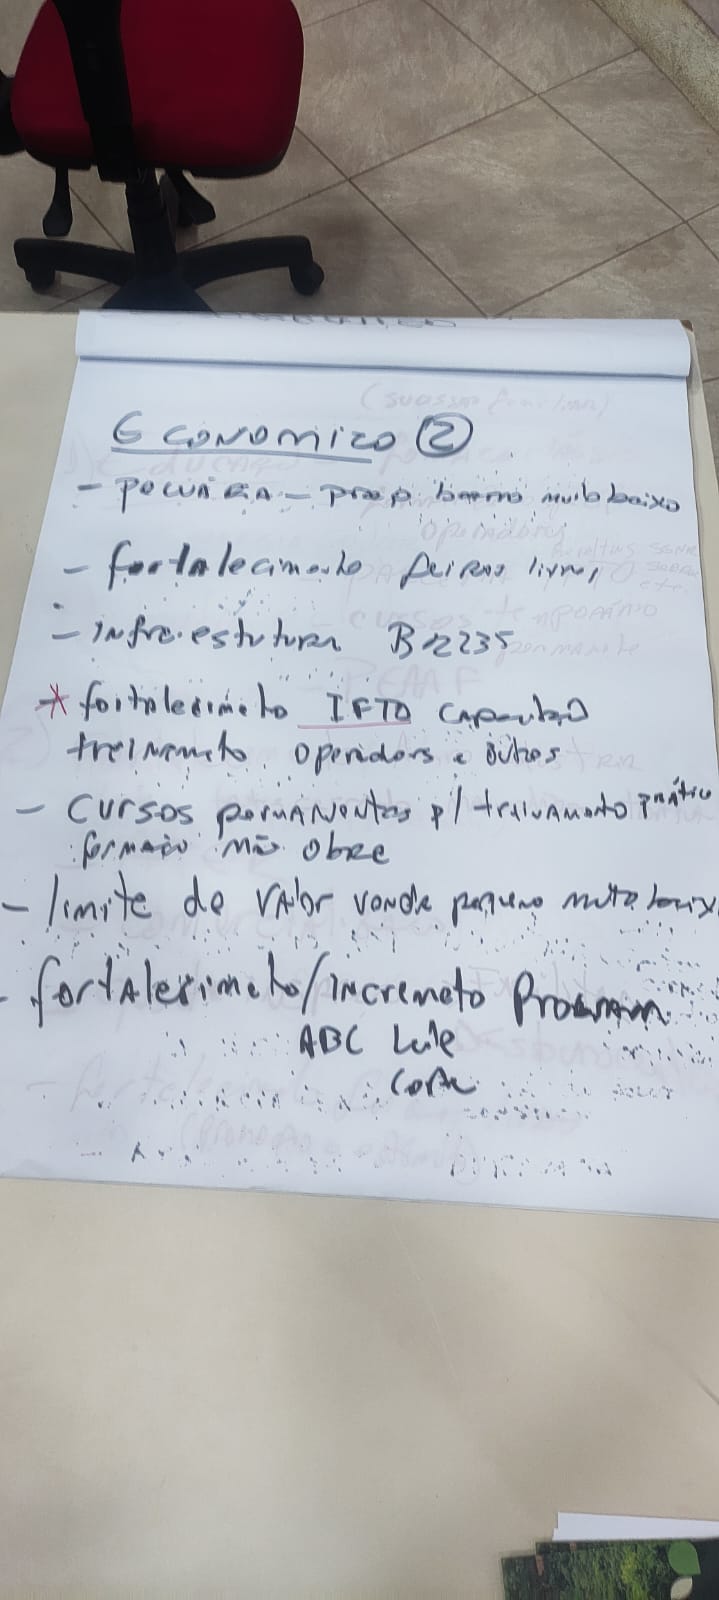 Economico ②
- Pecuária - preço bezerro muito baixo
- fortalecimento feiras livres
- Infra.estutura BR 235
* fortalecimeto IFTO capacitação
treinameto operadors e outros
- Cursos permanentes p/ treinamento prático
formação mão obre
- limite de valor venda pequeno muito baixo
- fortalecimeto/incremeto Program
ABC Leite
Corte